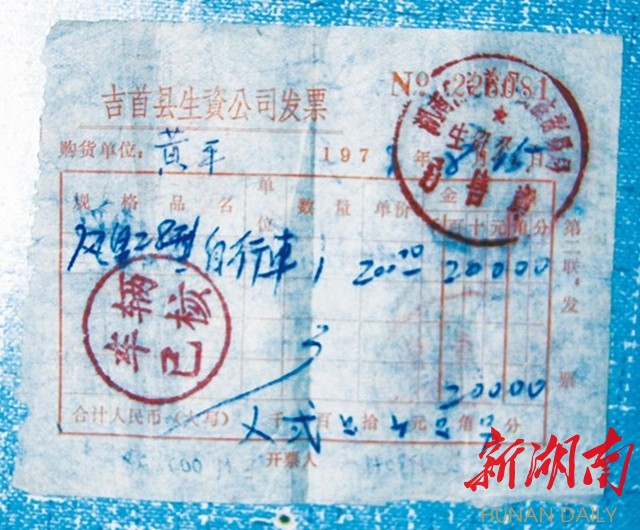 吉首县生資公司发票
No 226081
购货单位: 黄平
197 年 8 月 15 日
规格品名 单位 数量 单价 金
千百十元角分
凤凰28型自行車 1 200.00 20000
车辆已核
20000
合计人民币(大写) 千 弍 百 拾 元 角 分
开票人
第二联,发票
生资
已售
新湖南
HUNAN DAILY